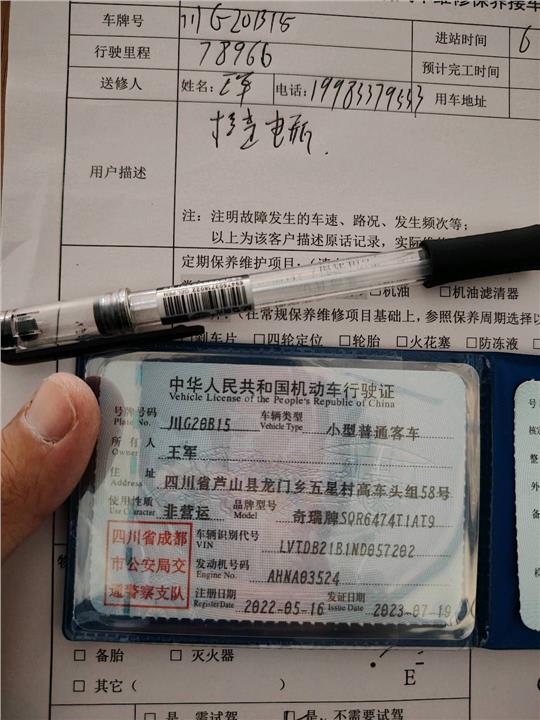 维修保养接车
车牌号 川G20B15 进站时间 6
行驶里程 78966 预计完工时间
送修人 姓名：王军 电话：19983379553 用车地址
用户描述 检查电瓶
注：注明故障发生的车速、路况、发生频次等；
以上为该客户描述原话记录，实际
定期保养维护项目：
□机油 □机油滤清器
在常规保养维修项目基础上，参照保养周期选择以
刹车片 □四轮定位 □轮胎 □火花塞 □防冻液
中华人民共和国机动车行驶证
Vehicle License of the People's Republic of China
号牌号码 Plate No. 川G20B15 车辆类型 Vehicle Type 小型普通客车
所有人 Owner 王军
住址 Address 四川省芦山县龙门乡五星村高车头组58号
使用性质 Use Character 非营运 品牌型号 Model 奇瑞牌SQR6474T1AT9
四川省成都市公安局交通警察支队
车辆识别代号 VIN LVTDB21B1ND057202
发动机号码 Engine No. AHNA03524
注册日期 Register Date 2022-05-16 发证日期 Issue Date 2023-07-19
□ 备胎 □ 灭火器
□ 其它（ ）
E
是 需试驾 不需要试驾